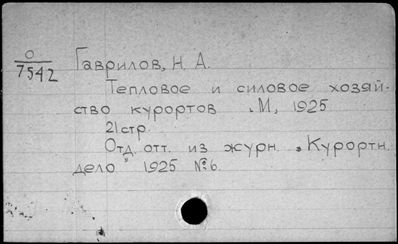 О
7542
Гаврилов, Н. А.
Тепловое и силовое хозяй-
ство курортов. М, 1925
21 стр.
Отд. отт. из журн. „Курортн.
дело" 1925 №6.